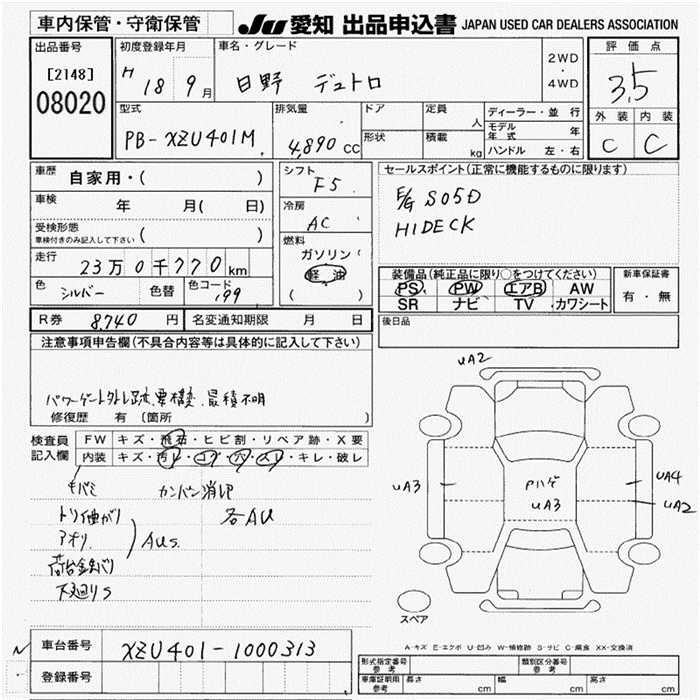 車内保管・守衛保管
JU 愛知 出品申込書 JAPAN USED CAR DEALERS ASSOCIATION
出品番号
[2148]
08020
初度登録年月
H 18 9 月
車名・グレード
日野 デュトロ
2WD
・
4WD
評価点
3.5
外装 内装
C C
型式
PB-XZU401M
排気量
4,890 CC
ドア
形状
定員
人
積載
kg
ディーラー・並行
モデル年式 年
ハンドル 左・右
車歴
自家用・( )
車検
年 月( 日)
受検形態
車検付きのみ記入して下さい ( )
走行
23万0千770km
色
シルバー
色替
色コード
199
シフト
F5
冷房
AC
燃料
ガソリン
軽油
( )
セールスポイント(正常に機能するものに限ります)
E/G S05D
HIDECK
装備品(純正品に限り○をつけてください)
PS PW エアB AW
SR ナビ TV カワシート
新車保証書
有・無
R券 8,740 円
名変通知期限 月 日
後日品
注意事項申告欄(不具合内容等は具体的に記入して下さい)
パワーゲート外し跡
最積不明
修復歴 有 〔箇所 〕
検査員
記入欄
FW キズ・飛石・ヒビ割・リペア跡・X要
内装 キズ・汚レ・コゲ・穴・スレ・キレ・破レ
キバミ
カンバン消し
トリイ曲がり
各AU
アオリ
AUS
荷台
下廻りS
UA2
UA3
Pハゲ
UA3
UA4
UA2
スペア
A-キズ E-エクボ U-凹み W-補修跡 S-サビ C-腐食 XX-交換済
車台番号 XZU401-1000313
登録番号
型式指定番号
参考
類別区分番号
参考
車庫証明用
参考
長さ cm 幅 cm 高さ cm